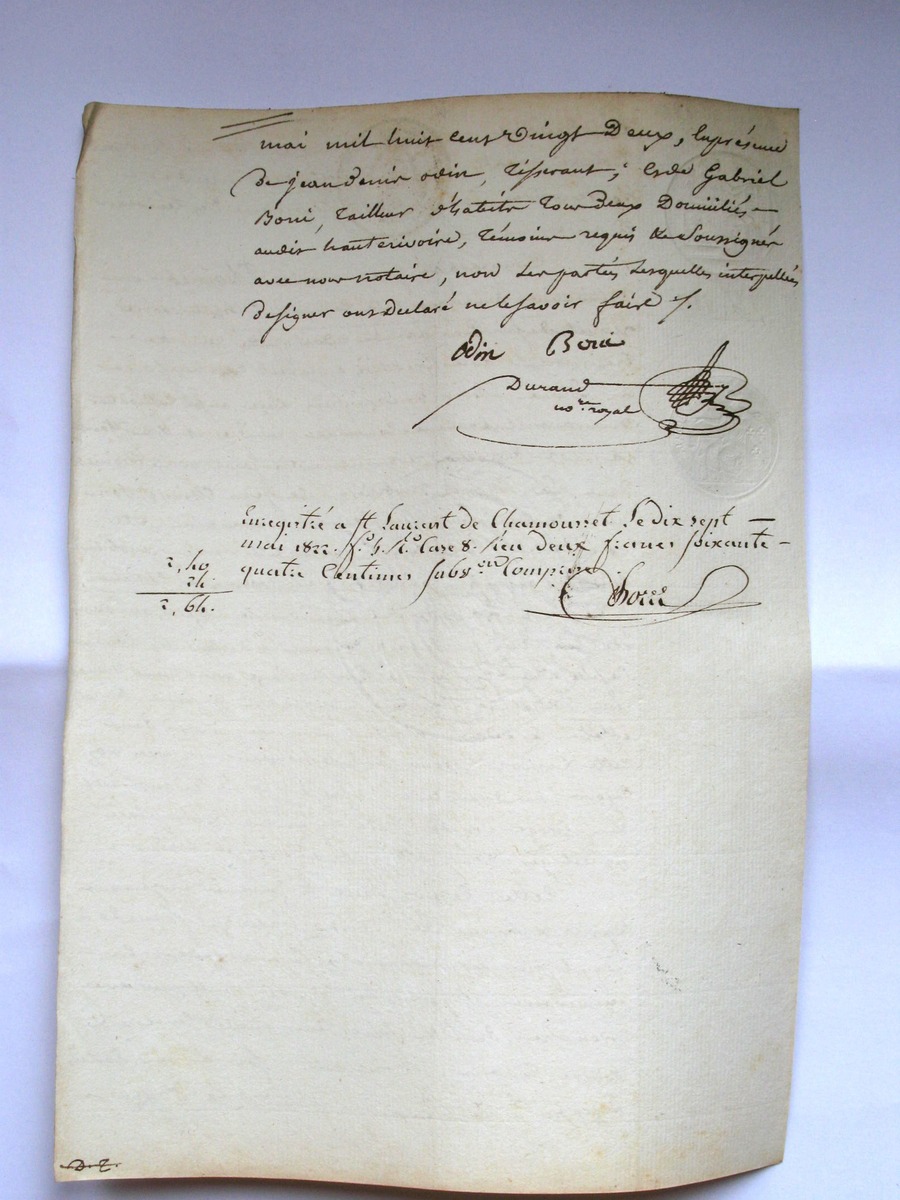 mai mil huit cent vingt Deux, En présence
de jean denis odin, tisserant, et de Gabriel
Boni, tailleur d'habits tous deux Domiciliés
audit hauterivoire, témoins requis & soussignés
avec nous notaire, non Les parties Lesquelles interpellées
de signer ont déclaré ne le savoir faire /.
Odin Boni
Durand
no.re royal
Enregistré a St Laurent de Chamousset Le dix sept
mai 1822. fo. 5. Ro. Case 8. Reçu deux francs soixante
quatre Centimes subv.on Comprise
2,40
24
2,64.
D. T.